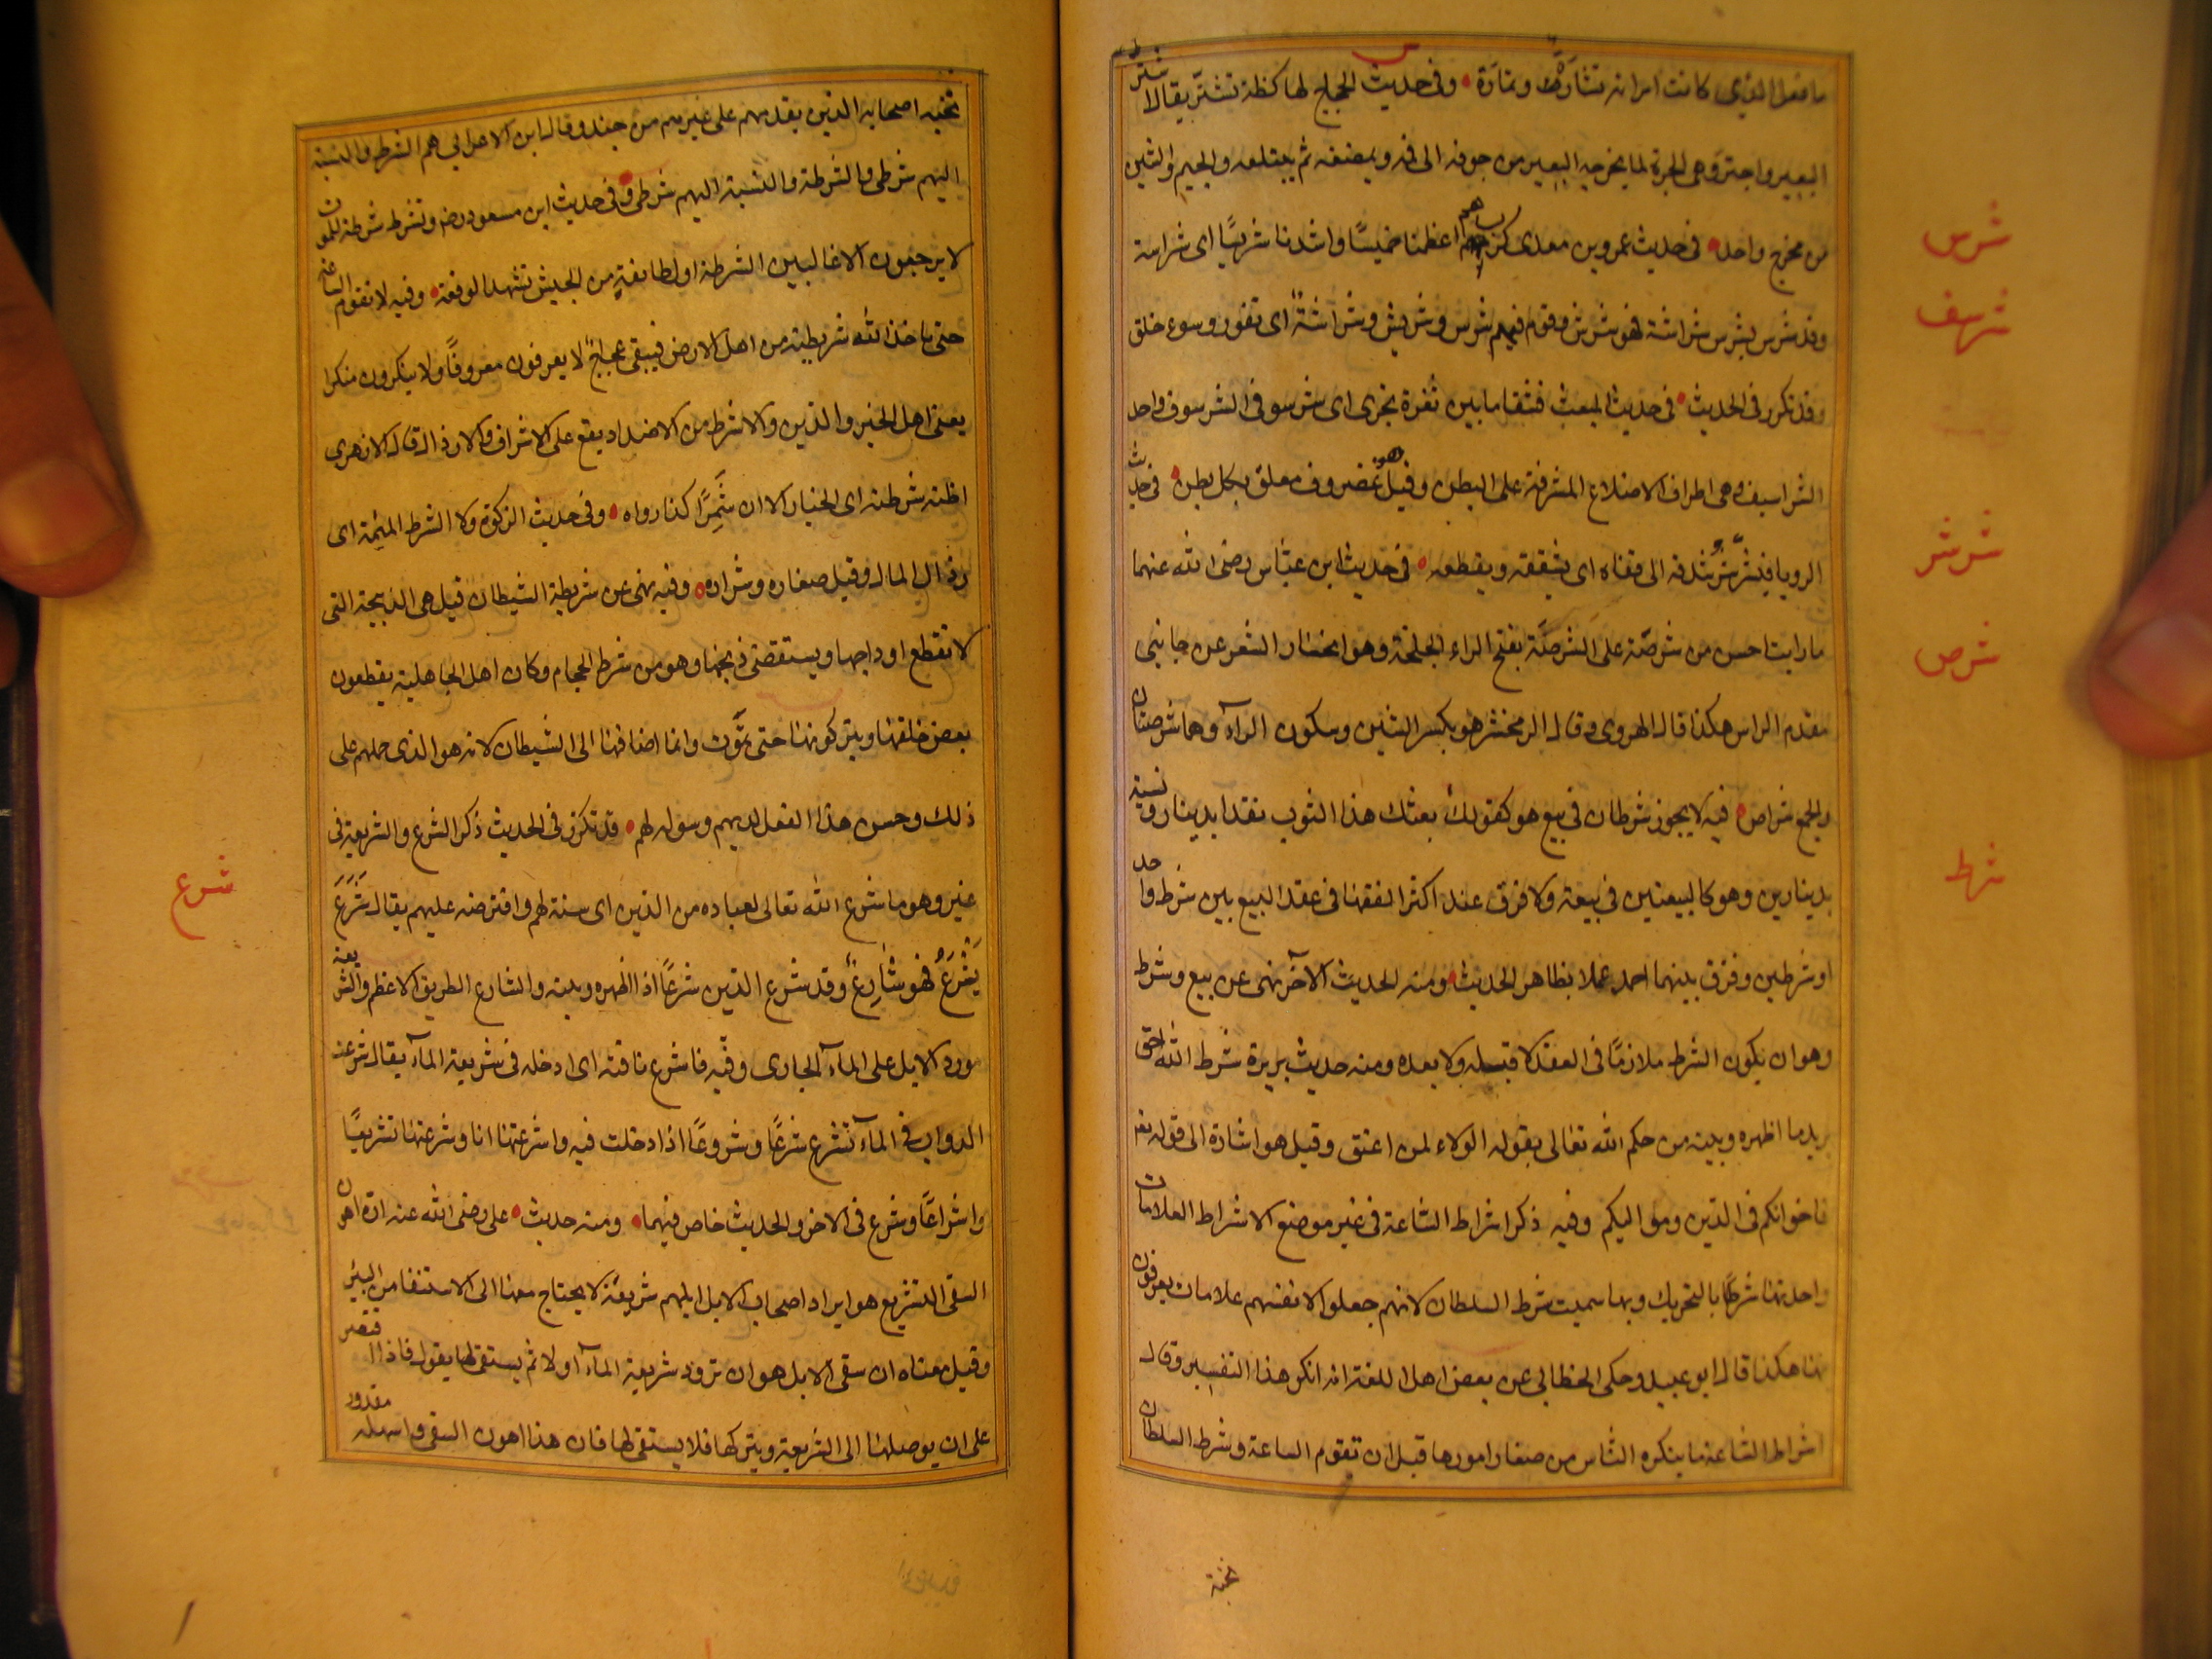 ما فعل الذى كانت امراته تشارّه وتمارّه وفى حديث الحجاج لها كظة تشترّ يقال اشتر
البعير واجترّ وهى الجرة لما يخرجه البعير من جوفه الى فمه ويمضغه ثم يبتلعه والجيم والشين
من مخرج واحد فى حديث عمرو بن معدى كرب هم اعظمنا خميسًا واشدنا شريسًا اى شراسة
شرس
وقد شرس يشرس شراسة فهو شرس وقوم فيهم شرس وشريس وشراسة اى نفور وسوء خلق
شرسف
وقد تكرر فى الحديث فى حديث المبعث فشقا ما بين ثغرة نحرى اى شرسوفى الشرسوف واحد
الشراسيف وهى اطراف الاضلاع المشرفة على البطن وقيل هو غضروف معلق بكل بطن فى حديث
شرشر
الرويا فيشرشر شدقه الى قفاه اى يشققه ويقطعه فى حديث ابن عبّاس رضى الله عنهما
شرص
ما رايت احسن من شرصة على الشرصة بفتح الراء الجلحة وهو انحسار الشعر عن جانبى
مقدم الراس هكذا قال الهروى وقال الزمخشر هو بكسر الشين وسكون الرآء وهما شرصتان
والجمع شراص فيه لا يجوز شرطان فى بيع هو كقولك بعتك هذا الثوب نقدا بدينار ونسية
شرط
بدينارين وهو كالبيعتين فى بيعة ولا فرق عند اكثر الفقها فى عقد البيع بين شرط واحد
او شرطين وفرّق بينهما احمد عملا بظاهر الحديث ومنه الحديث الآخر نهى عن بيع وشرط
وهو ان يكون الشرط ملازمًا فى العقد لا قبله ولا بعده ومنه حديث بريرة شرط الله احق
يريد ما اظهره وبينه من حكم الله تعالى بقوله الولاء لمن اعتق وقيل هو اشارة الى قوله تعـ
فاخوانكم فى الدّين ومواليكم وفيه ذكر اشراط الساعة فى غير موضع الاشراط العلامات
واحدتها شرط بالتحريك وبها سميت شرط السلطان لانهم جعلوا لانفسهم علامات يعرفون
بها هكذا قال ابو عبيد وحكى الخطابى عن بعض اهل اللغة انه انكر هذا التفسير وقال
اشراط الساعة ما ينكره الناس من صغار امورها قبل ان تقوم الساعة وشرط السلطان
نخبة
نخبة اصحابه الذين يقدمهم على غيرهم من جنده وقال ابن الاعرابى هم الشرط والنسبة
اليهم شرطى والشرطة والنسبة اليهم شرطى وفى حديث ابن مسعود رضه وتشرط شرطة للموت
لا يرجعون الا غالبين الشرطة اول طائفة من الجيش تشهد الوقعة وفيه لا تقوم الساعة
حتى ياخذ الله شريطته من اهل الارض فيبقى عجاج لا يعرفون معروفًا ولا ينكرون منكرا
يعنى اهل الخير والدين والاشرط من الاضداد يقع على الاشراف والارذال قال الازهرى
اظنه شرطته اى الخيار الا ان شَمِرًا كذا رواه وفى حديث الزكوة ولا الشرط اللئيمة اى
رذال المال وقيل صغاره وشراره وفيه نهى عن شريطة الشيطان قيل هى الذبيحة التى
لا تقطع اوداجها ويستقصى ذبحها وهو من شرط الحجام وكان اهل الجاهلية يقطعون
بعض حلقها ويتركونها حتى تموت وانما اضافها الى الشيطان لانه هو الذى حملهم على
ذلك وحسن هذا الفعل لديهم وسوله لهم قد تكرر فى الحديث ذكر الشرع والشريعة فى
شرع
غير وهو ما شرع الله تعالى لعباده من الدين اى سنه لهم وافترضه عليهم يقال شَرَعَ
يَشْرَعُ فهو شارِعٌ وقد شرع الدين شرعًا اذا اظهره وبينه والشارع الطريق الاعظم والشريعة
مورد الابل على المآء الجارى وفيه فاشرع ناقته اى ادخلها فى شريعة المآء يقال شرعت
الدواب فى المآء تشرع شرعًا وشروعًا اذا دخلت فيه واشرعتها انا وشرعتها تشريعًا
واشراعًا وشرع فى الامر والحديث خاص فيهما ومنه حديث على رضى الله عنه انّ اهون
السقى التشريع هو ايراد اصحاب الابل ابلهم شريعة لا يحتاج معها الى الاستقا من البئر
وقيل معناه ان سقى الابل هو ان تورد شريعة المآء اولا ثم يستقى لها يقول فاذا اقتصر
على ان يوصلها الى الشريعة ويتركها فلا يستقى لها فان هذا اهون السقى واسهله مقدور